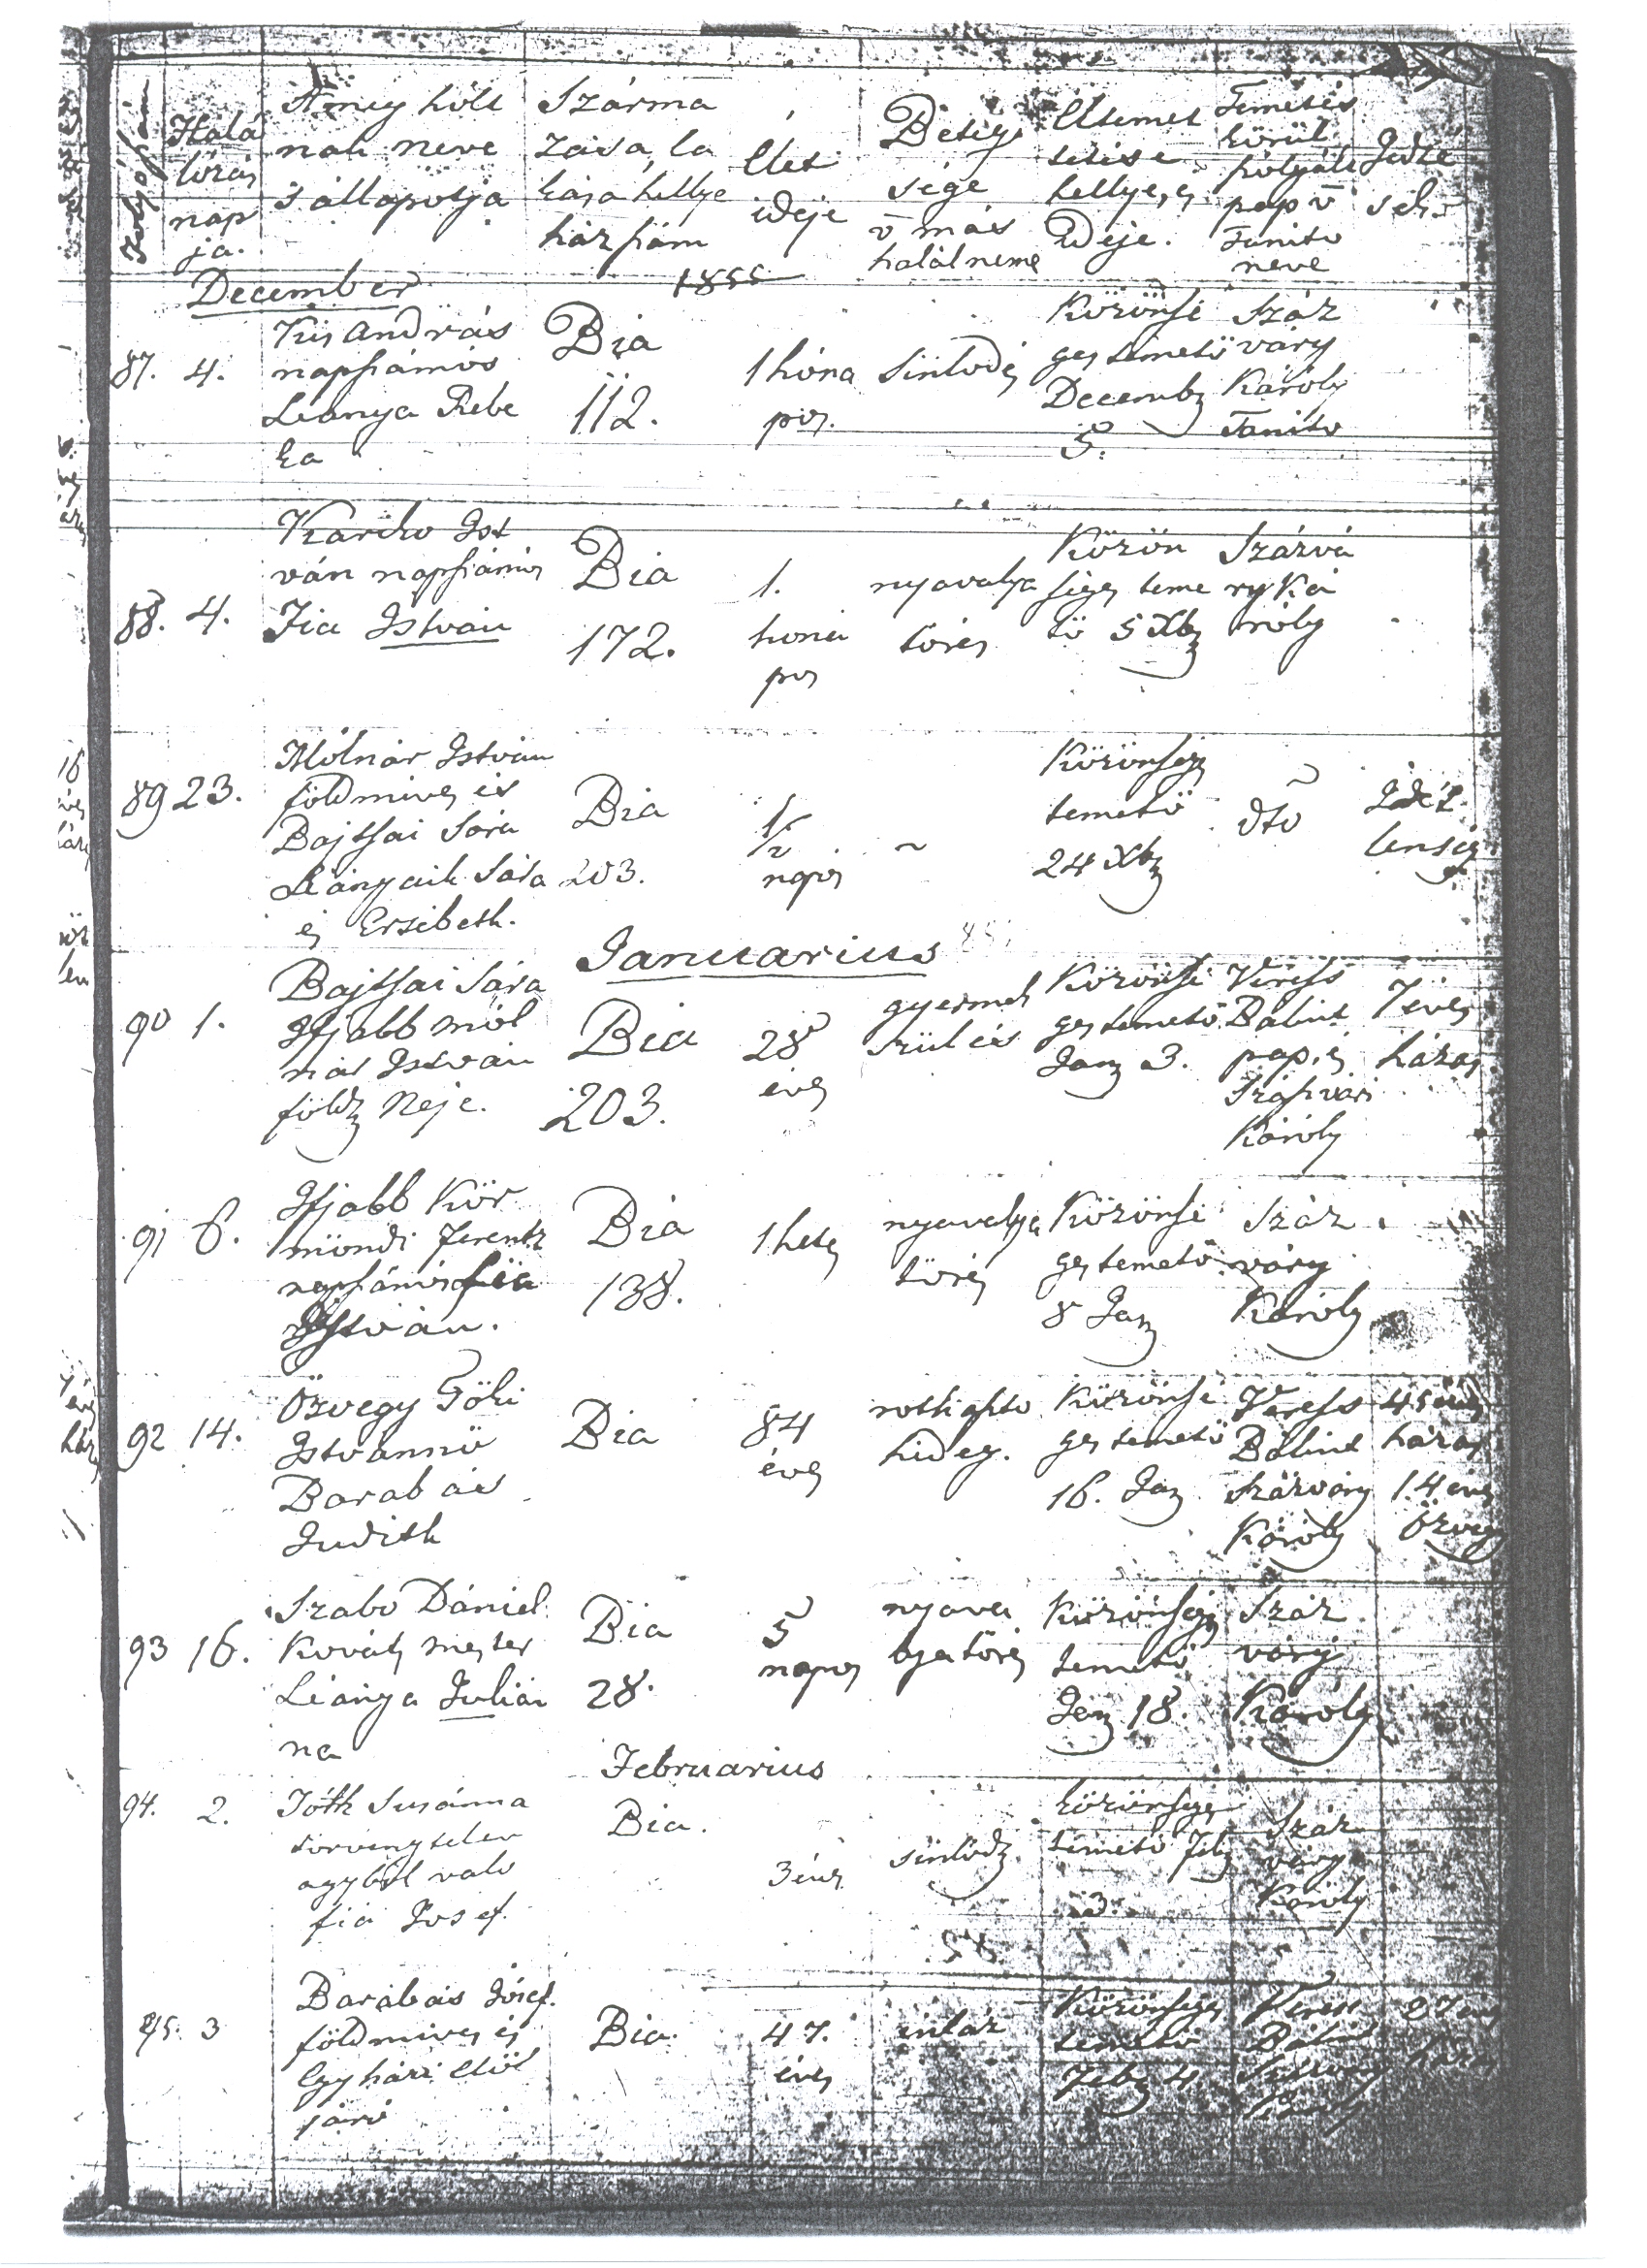 Folyó szám
Halá
lozás
nap
ja.
A meg holt
nak neve
s állapotja
Szárma
zása, la
kása hellye
ház szám
Élet
ideje
Beteg
sége
v más
halál neme
Eltemet
tetése
hellye, és
Ideje.
Temetés
körül
szolgáló
pap v
Tanito
neve
Jedzé
sek.
December
1855
87. 4.
Kis András
napszámos
Leánya Rebe
ka
Bia
112.
1 hóna
pos.
sinlodés
Közönsé
ges temető
Decembr
5.
Száz
váry
Károly
Tanito
88. 4.
István napszámos
Fia István
Bia
172.
1.
hona
pos
nyavalya
törés
Közön
séges teme
tő 5 Xbr
Szárvá
ry Ká
roly
89 23.
Mólnár István
földmives és
Bajtsai Sára
Leányaik Sára
és Ersébeth.
Bia
203.
1/2
napos
~
Közönséges
temető
24 Xbr
dto
Idét
lenség
Januarius
90 1.
Bajtsai Sára
Ifjabb Mól
nár István
földm Neje.
Bia
203.
28
éves
gyermek
szülés
Közönsé
ges temető
Jan 3.
Veress
Bálint
pap, és
Károly
7 éves
házas
91 6.
Ifjabb Kör
möndi Ferentz
napszámos fia
István.
Bia
138.
1 hetes
nyavalya
törés
Közönsé
ges temető
8 Jan
Száz
váry
Károly
92 14.
Özvegy Göli
Istvánnö
Barabás
Judith
Bia
84
éves
hideg.
Közönsé
ges temető
16. Jan
Veress
Bálint
Szárváry
Károly
45 évig
házas
14 éves
Özvegy
93 16.
Szabo Dániel
Kováts mester
Léánya Julián
na
Bia
28.
5
napos
nyava
lyatörés
Közönséges
temető
Jan 18.
Száz
váry
Károly
Februarius
94. 2.
Tóth Susánna
törvénytelen
agyból valo
fia Josef.
Bia.
3 éves
sinlődz.
közönséges
temető Feb
3.
Száz
váry
Károly
95. 3
Barabás Jósef.
földmives és
Egyházi elöl
járó
Bia.
47.
éves
Közönséges
temető
Feb 4
Veress
Bálint
27 éves
házas